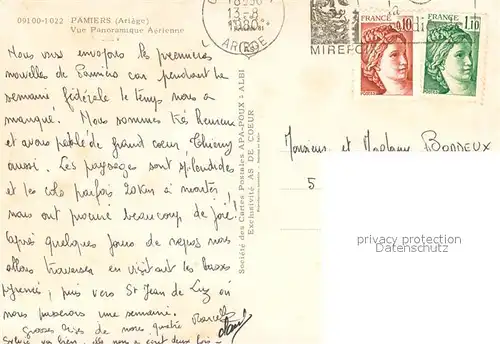 09100-1022 PAMIERS (Ariège)
Vue Panoramique Aérienne
Nous vous envoyons les premières
nouvelles de Pamiers car pendant la
semaine fédérale le temps nous a
manqué! Nous sommes très heureux
et avons pédalé de grand coeur Thierry
aussi. Les paysages sont splendides
et les cols parfois 20Km à monter
nous ont procuré beaucoup de joie!
Après quelques jours de repos nous
allons traverser en visitant les basses
pyrénées, puis vers St Jean de Luz où
nous passerons une semaine.
Grosses bises de nous quatre Marcelle
Sylvie va bien, elle nous a écrit deux fois
Société des Cartes Postales APA-POUX - ALBI
Exclusivité AS DE COEUR
13-8
1980
ARIEGE
MIREPO
FRANCE
0,10
FRANCE
1,10
Monsieur et Madame BORDEUX
5
privacy protection
Datenschutz